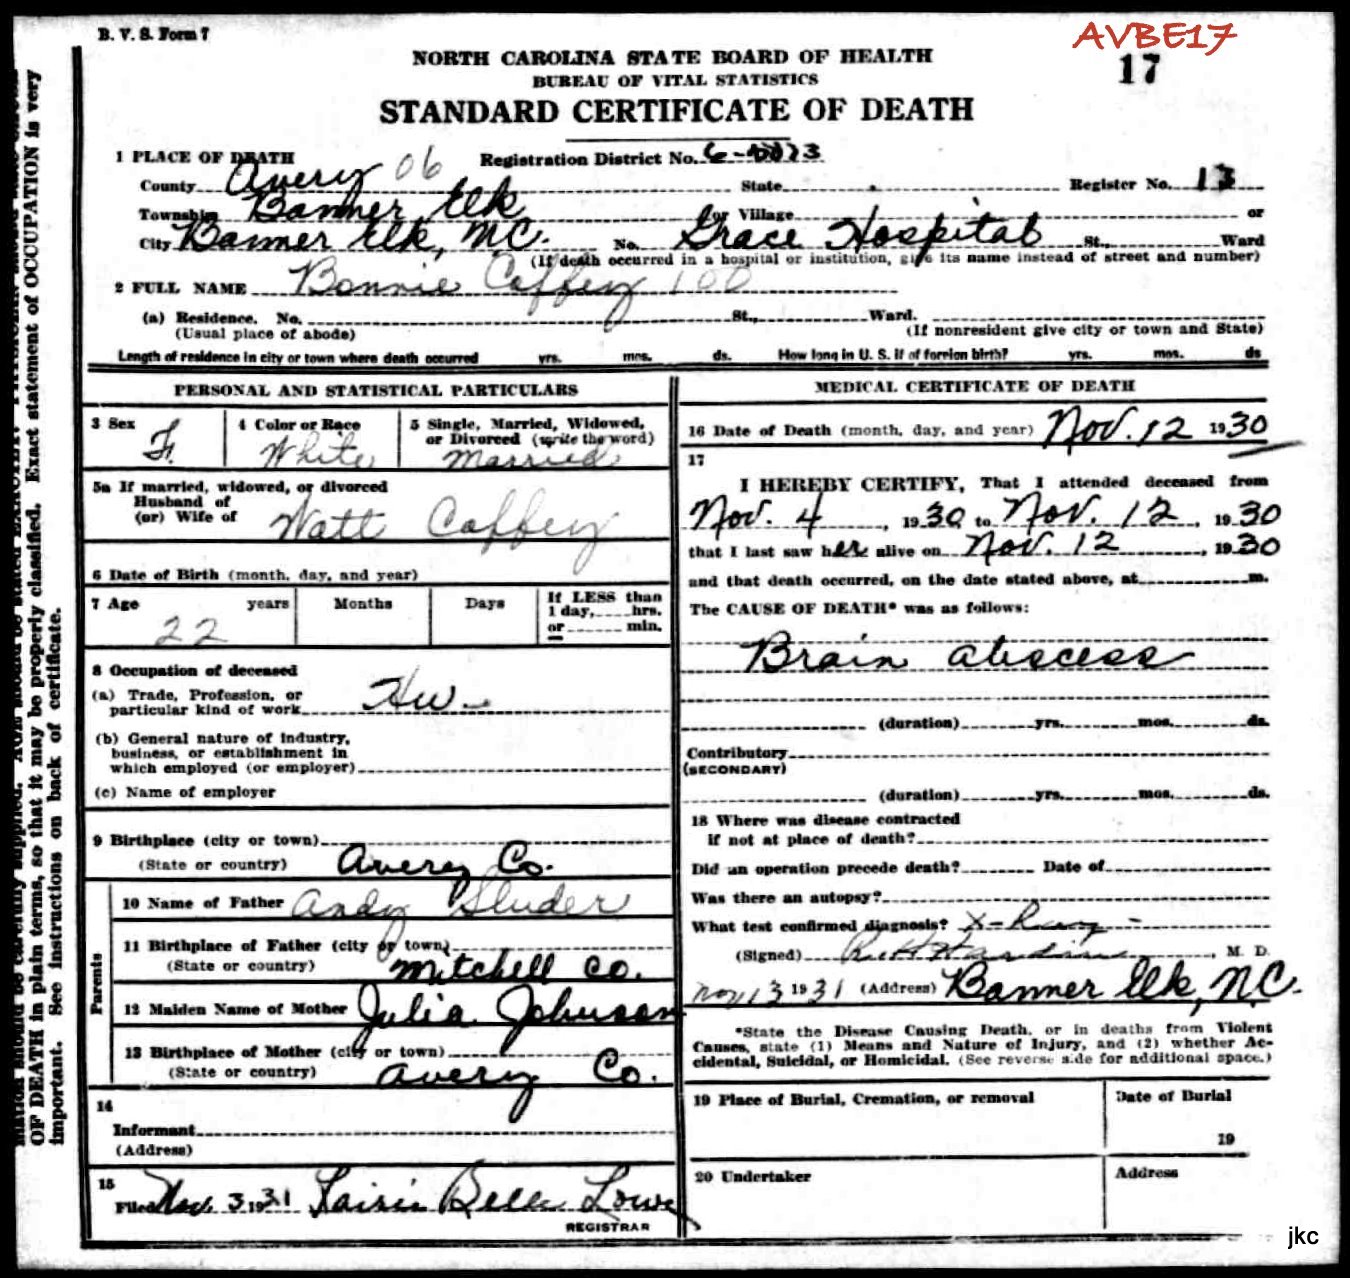 B. V. S. Form 7
AVBE17
17
NORTH CAROLINA STATE BOARD OF HEALTH
BUREAU OF VITAL STATISTICS
STANDARD CERTIFICATE OF DEATH
1 PLACE OF DEATH
Registration District No.
County Avery 06 State Register No. 13
Township Banner Elk or Village or
City Banner Elk, N.C. No. Grace Hospital St., Ward
(If death occurred in a hospital or institution, give its name instead of street and number)
2 FULL NAME Bonnie Coffey 100
(a) Residence. No. St., Ward.
(Usual place of abode) (If nonresident give city or town and State)
Length of residence in city or town where death occurred yrs. mos. ds. How long in U. S. if of foreign birth? yrs. mos. ds
PERSONAL AND STATISTICAL PARTICULARS
3 Sex F.
4 Color or Race White
5 Single, Married, Widowed,
or Divorced (write the word)
Married
5a If married, widowed, or divorced
Husband of
(or) Wife of Watt Coffey
6 Date of Birth (month, day, and year)
7 Age years Months Days If LESS than
1 day, hrs.
or min.
22
8 Occupation of deceased
(a) Trade, Profession, or
particular kind of work Hw.
(b) General nature of industry,
business, or establishment in
which employed (or employer)
(c) Name of employer
9 Birthplace (city or town)
(State or country) Avery Co.
Parents
10 Name of Father Andy Sluder
11 Birthplace of Father (city or town)
(State or country) Mitchell Co.
12 Maiden Name of Mother Julia Johnson
13 Birthplace of Mother (city or town)
(State or country) Avery Co.
14
Informant
(Address)
15
Filed 3 1931 Belle Lowe
REGISTRAR
MEDICAL CERTIFICATE OF DEATH
16 Date of Death (month, day, and year) Nov. 12 1930
17
I HEREBY CERTIFY, That I attended deceased from
Nov. 4, 1930 to Nov. 12, 1930
that I last saw her alive on Nov. 12, 1930
and that death occurred, on the date stated above, at m.
The CAUSE OF DEATH* was as follows:
Brain abscess
(duration) yrs. mos. ds.
Contributory
(SECONDARY)
(duration) yrs. mos. ds.
18 Where was disease contracted
if not at place of death?
Did an operation precede death? Date of
Was there an autopsy?
What test confirmed diagnosis? X-Ray -
(Signed) R. H. Hardin, M. D.
Nov 13 1931 (Address) Banner Elk, N.C.
*State the Disease Causing Death, or in deaths from Violent
Causes, state (1) Means and Nature of Injury, and (2) whether Ac-
cidental, Suicidal, or Homicidal. (See reverse side for additional space.)
19 Place of Burial, Cremation, or removal
Date of Burial
19
20 Undertaker
Address
OF DEATH in plain terms, so that it may be properly classified. Exact statement of OCCUPATION is very
important. See instructions on back of certificate.
jkc